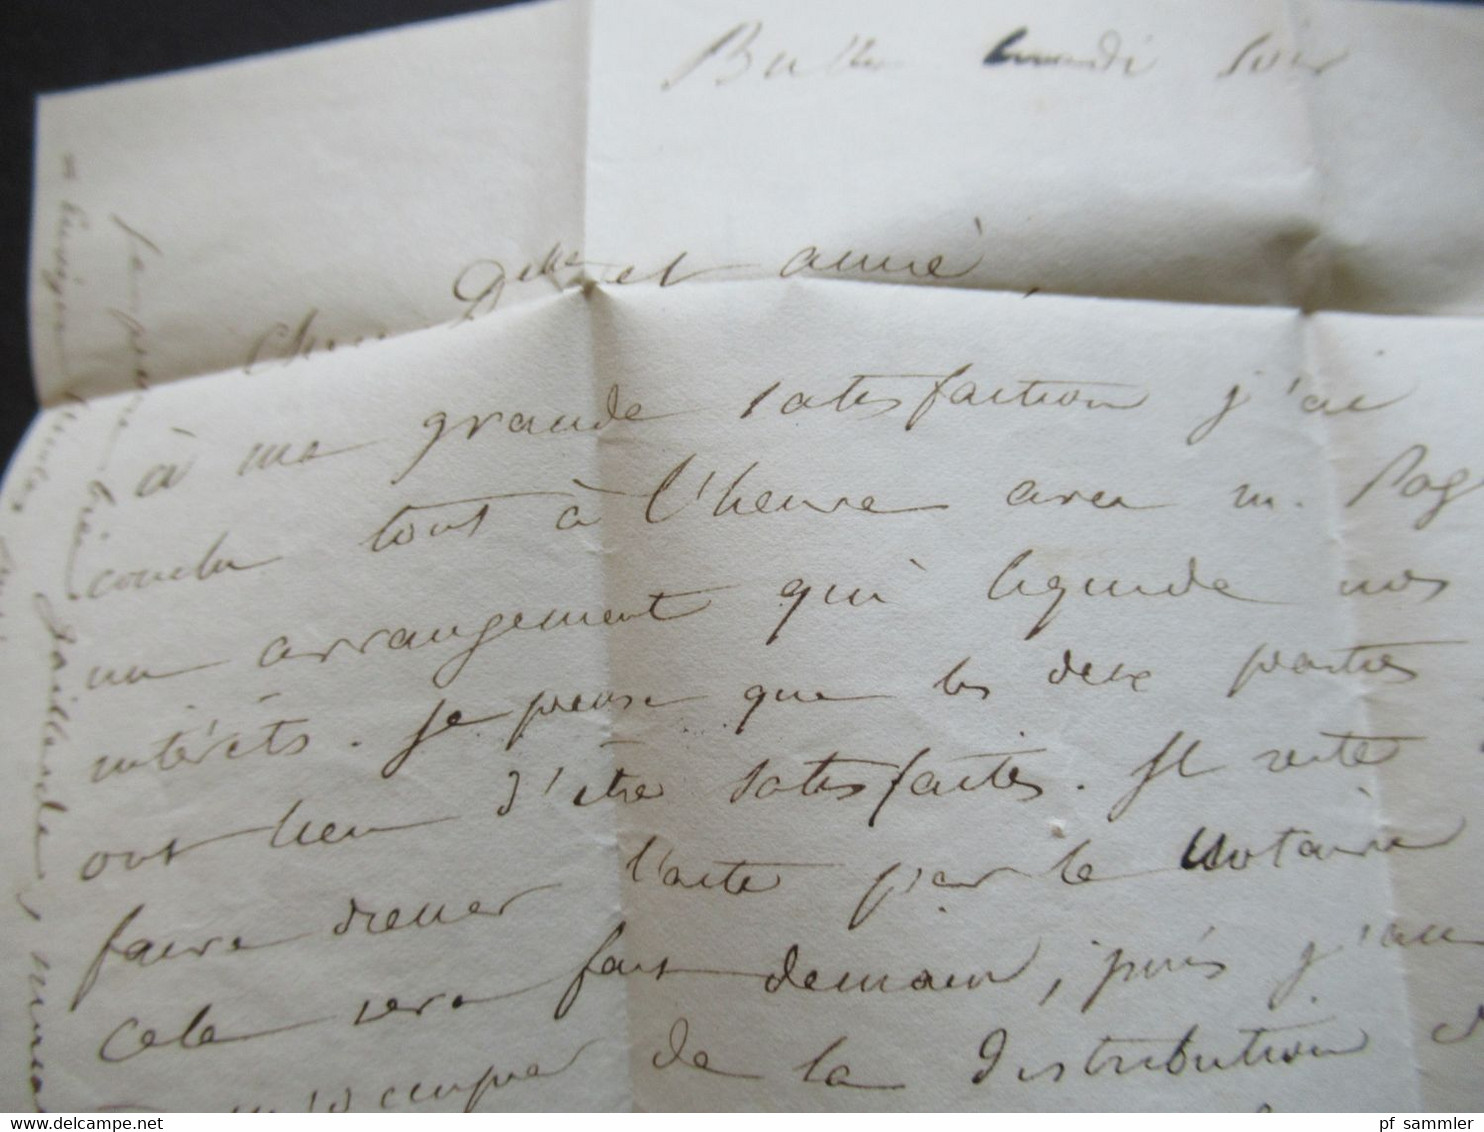 Bulle lundi soir
Chère Delle et amie,
à ma grande satisfaction j'ai
conclu tout à l'heure avec m. Pag
un arrangement qui liquide nos
intérêts. Je pense que les deux parties
ont lieu d'être satisfaites. Il reste
faire dresser l'acte par le Notaire
cela sera fait demain, puis j'au
m'occuper de la distribution d
Gaillarde,
www.delcampe.net
pf_sammler